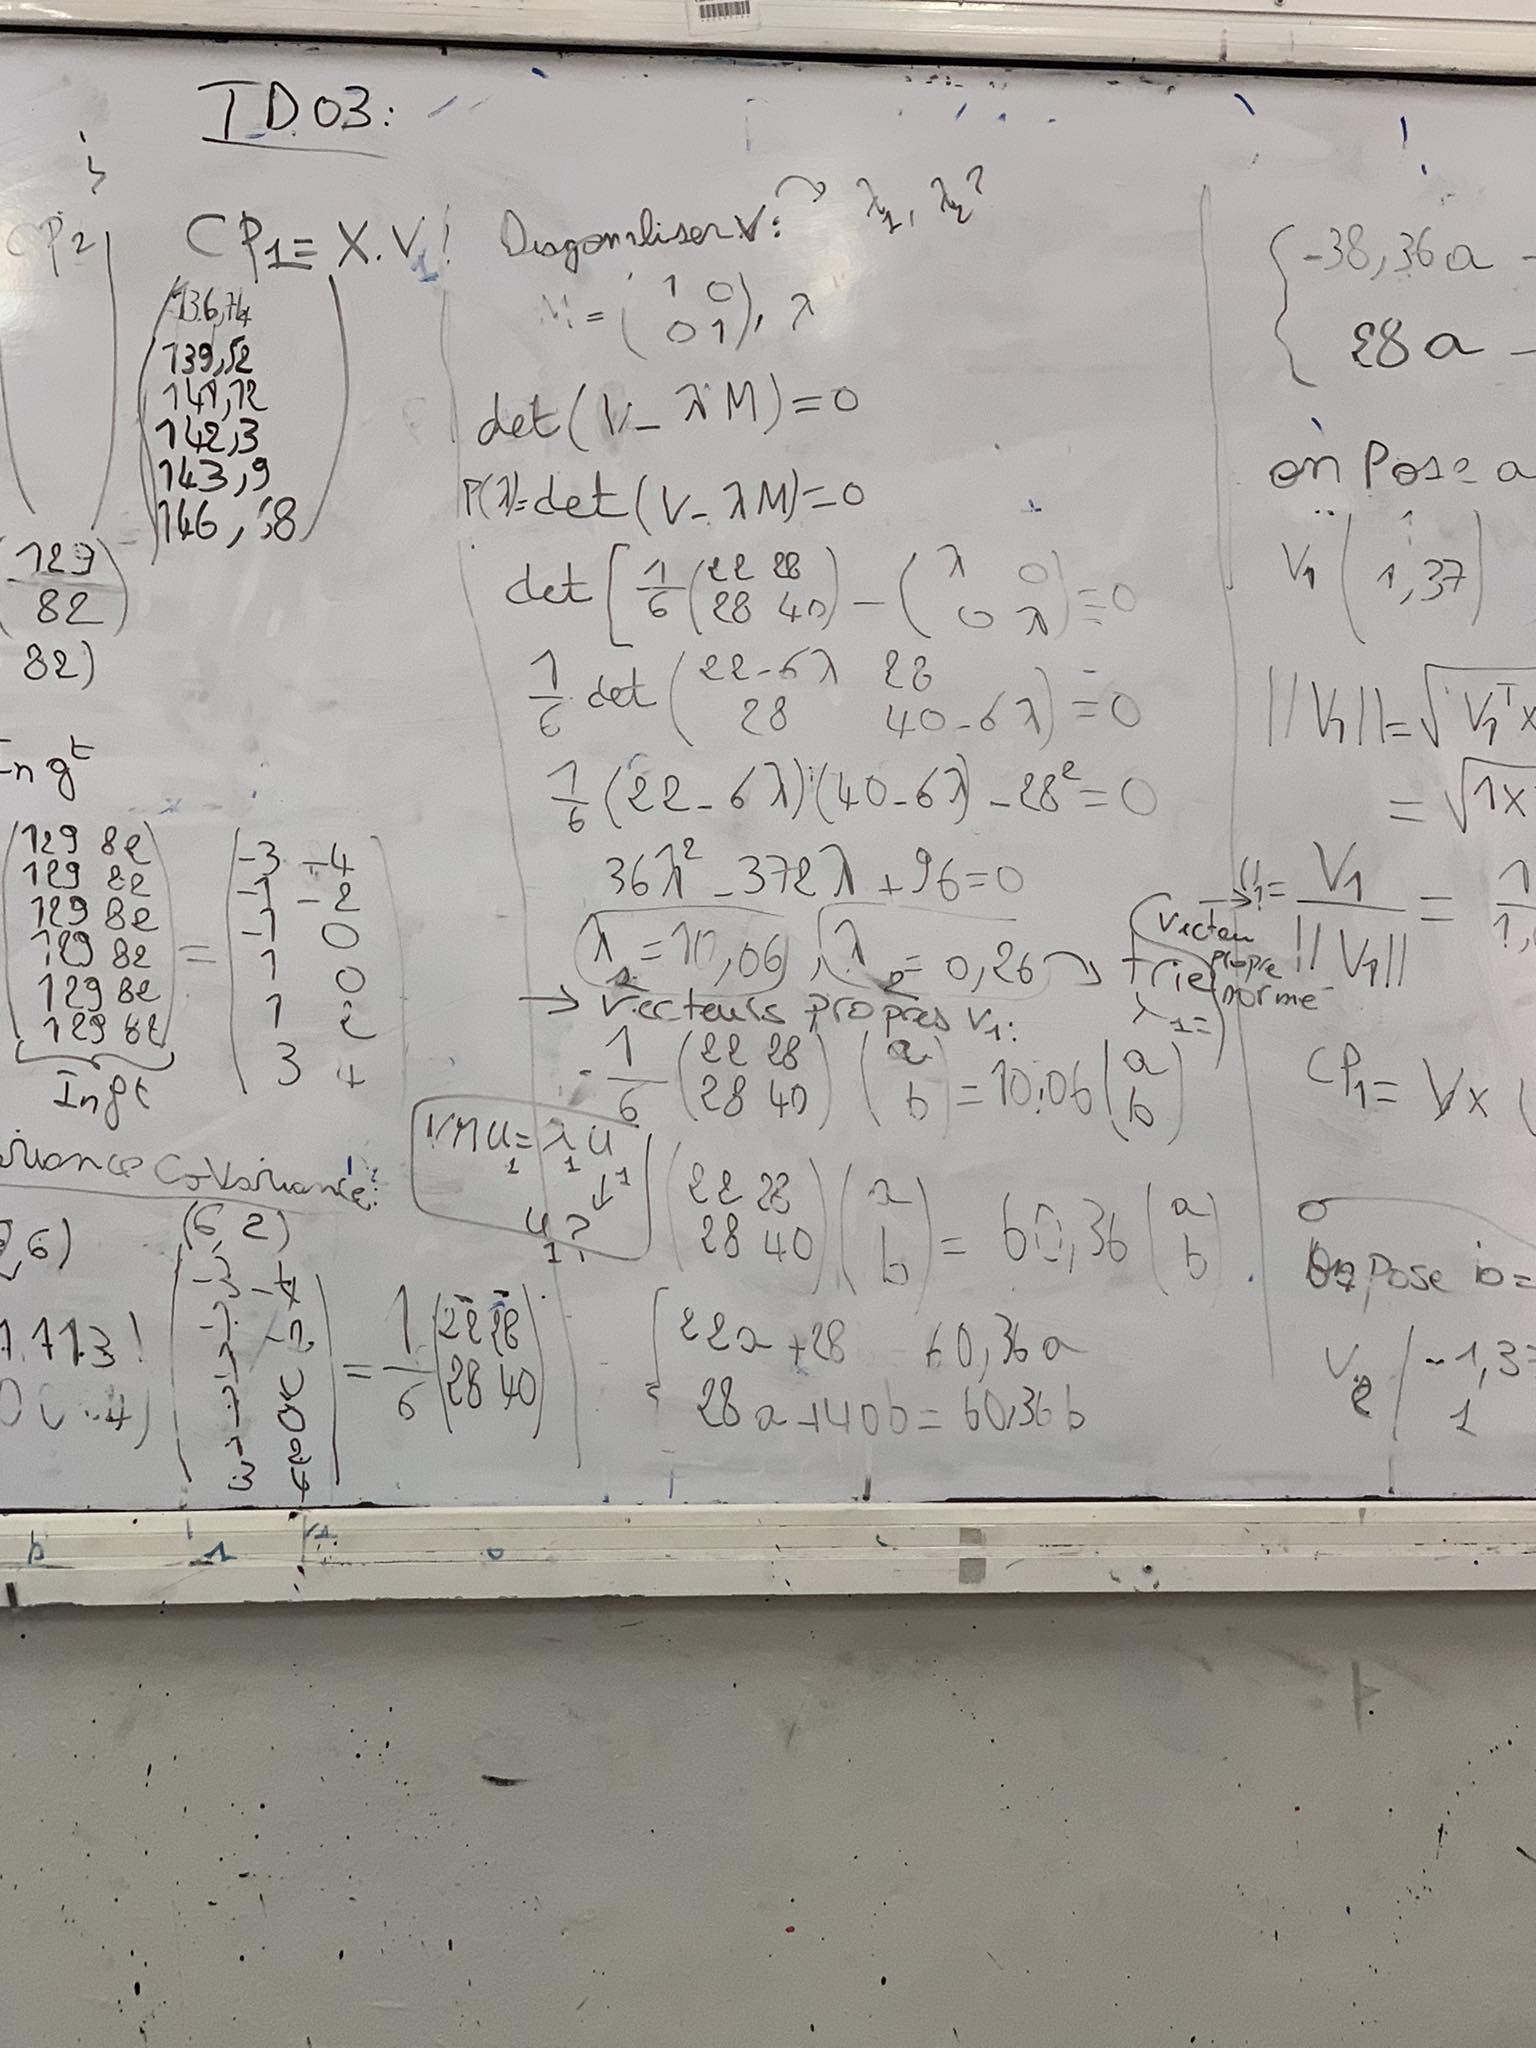 TD03:
CP2
CP1 = X.V1!
136,74
139,52
141,12
142,3
143,9
146,58
129
82
82)
Ingt
129 82
129 82
129 82
129 82
129 82
129 82
=
-3 -4
-1 -2
-1 0
1 0
1 2
3 4
Ingt
Covariance:
(6,2)
= 1/6 (22 28
28 40)
Diagonaliser V: → λ1, λ2?
M = (1 0
0 1), λ
det(V - λM) = 0
P(λ) = det(V - λM) = 0
det[1/6 (22 28
28 40) - (λ 0
0 λ)] = 0
1/6 det (22-6λ 28
28 40-6λ) = 0
1/6 (22-6λ)(40-6λ) - 28² = 0
36λ² - 372λ + 96 = 0
λ1 = 10,06, λ2 = 0,26 → trier
→ Vecteurs propres V1:
1/6 (22 28
28 40) (a
b) = 10,06 (a
b)
VMU1 = λ1U1
U1?
(22 28
28 40) (a
b) = 60,36 (a
b)
22a + 28 60,36a
28a + 40b = 60,36b
-38,36a -
28a -
on Pose a
V1 (1
1,37)
||V1|| = √V1ᵀ x
= √1x
vecteu propre norme
→ U1 = V1/||V1|| = 1
CP1 = Vx (
on pose b =
V2 (-1,3
1